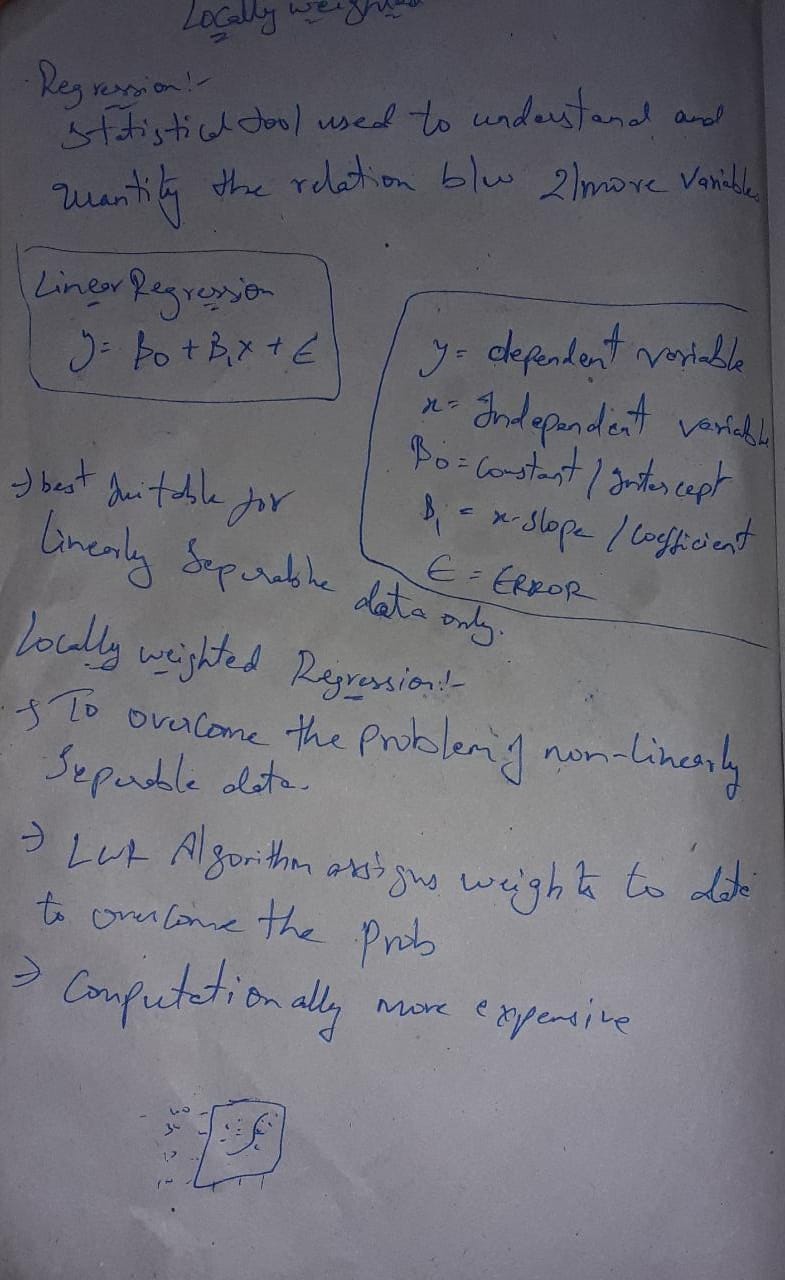 Locally weighted
Regression:-
Statistical tool used to understand and
quantity the relation b/w 2/more Variables
Linear Regression
y = β0 + β1x + ϵ
y = dependent variable
x = Independent variable
β0 = Constant / Intercept
β1 = x-slope / Coefficient
ϵ = ERROR
→ best suitable for
linearly Seperable data only.
Locally weighted Regression:-
→ To overcome the problem of non-linearly
Seperable data.
→ LWR Algorithm assigns weights to data
to overcome the Prob
→ Computationally more expensive